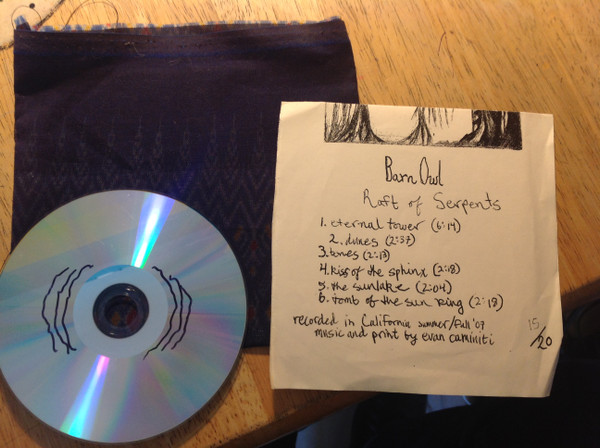 Barn Owl
Raft of Serpents
1. eternal tower (6:14)
2. dunes (2:37)
3. bones (2:13)
4. kiss of the sphinx (2:18)
5. the sunlake (2:04)
6. tomb of the sun king (2:18)
recorded in California summer/fall '07
music and print by evan caminiti
15/20